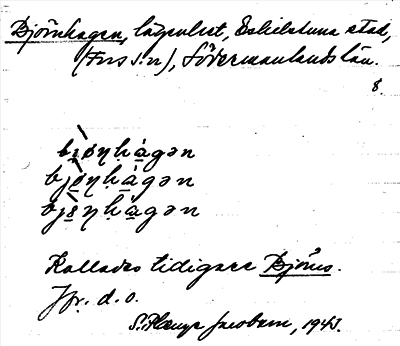 Björnhagen, lägenhet, Eskilstuna stad,
(Fors s:n), Södermanlands län.
8.
bjònhágən
bjo̱nhágən
bjènhágən
Kallades tidigare Björnö.
Jfr. d. o.
Jacobsson, 1943.